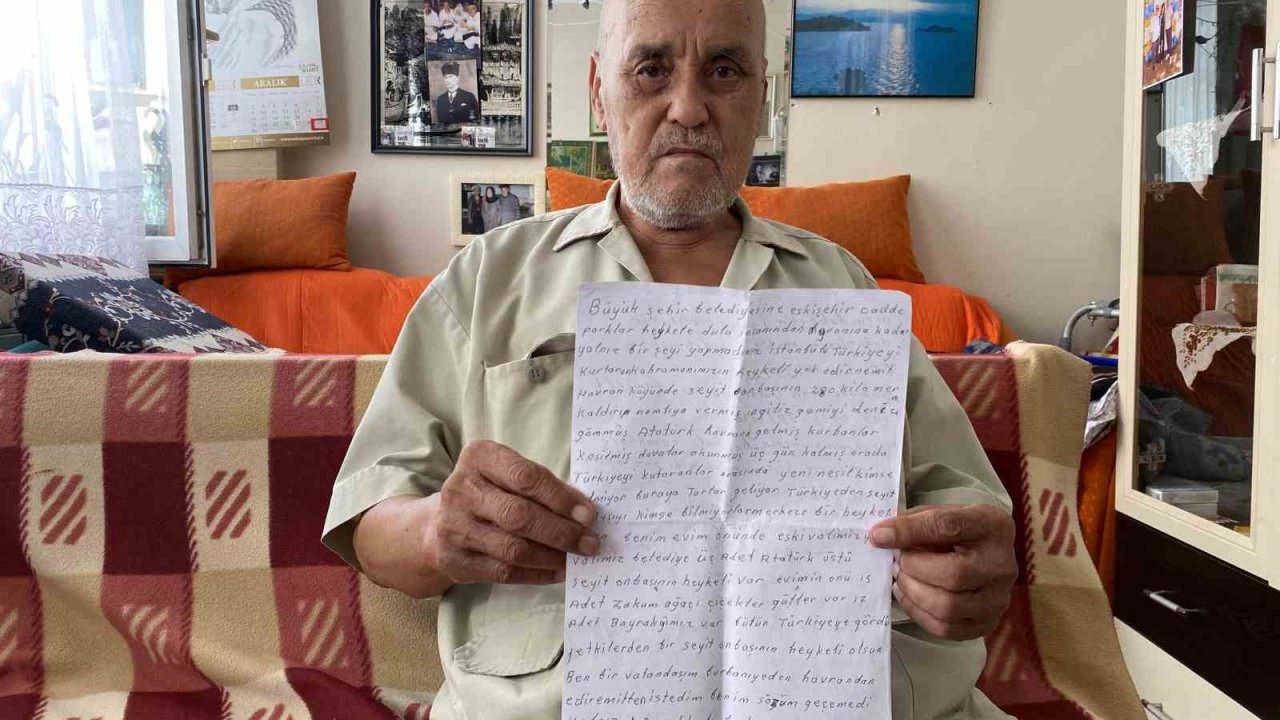 ARALIK
Büyük şehir belediyesine eskişehir cadde
parklar heykele dolu insanından hayvanına kadar
yalnız bir şeyi yapmadınız istanbulu Türkiyeyi
kurtaran kahramanımızın heykeli yok edirnemit
Havran köyünde seyit onbaşının 280 kilo mer
kaldırıp namluya vermiş ingiliz gemiyi denize
gömmüş Atatürk havrana gelmiş kurbanlar
kesilmiş duvalar okunmuş üç gün kalmış orada
Türkiyeyi kutaranlar arasında yeni nesil kimse
bilmiyor buraya Turlar geliyor Türkiyeden seyit
kimse bilmiyorlar merkeze bir heykel
benim evim önünde eski valimiz
valimiz belediye üç Adet Atatürk üstü
seyit onbaşının heykeli var evimin önü 15
Adet Zakum ağaçı çiçekler güller var 12
Adet Bayrağımız var bütün Türkiyeye gördü
yetkilerden bir seyit onbaşının heykeli olsun
Ben bir vatandaşım burhaniyeden havrandan
ediremitten istedim benim sözüm geçemedi